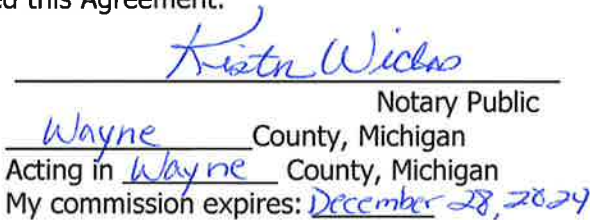 ed this Agreement.
Notary Public
Wayne County, Michigan
Acting in Wayne County, Michigan
My commission expires: December 28, 2024